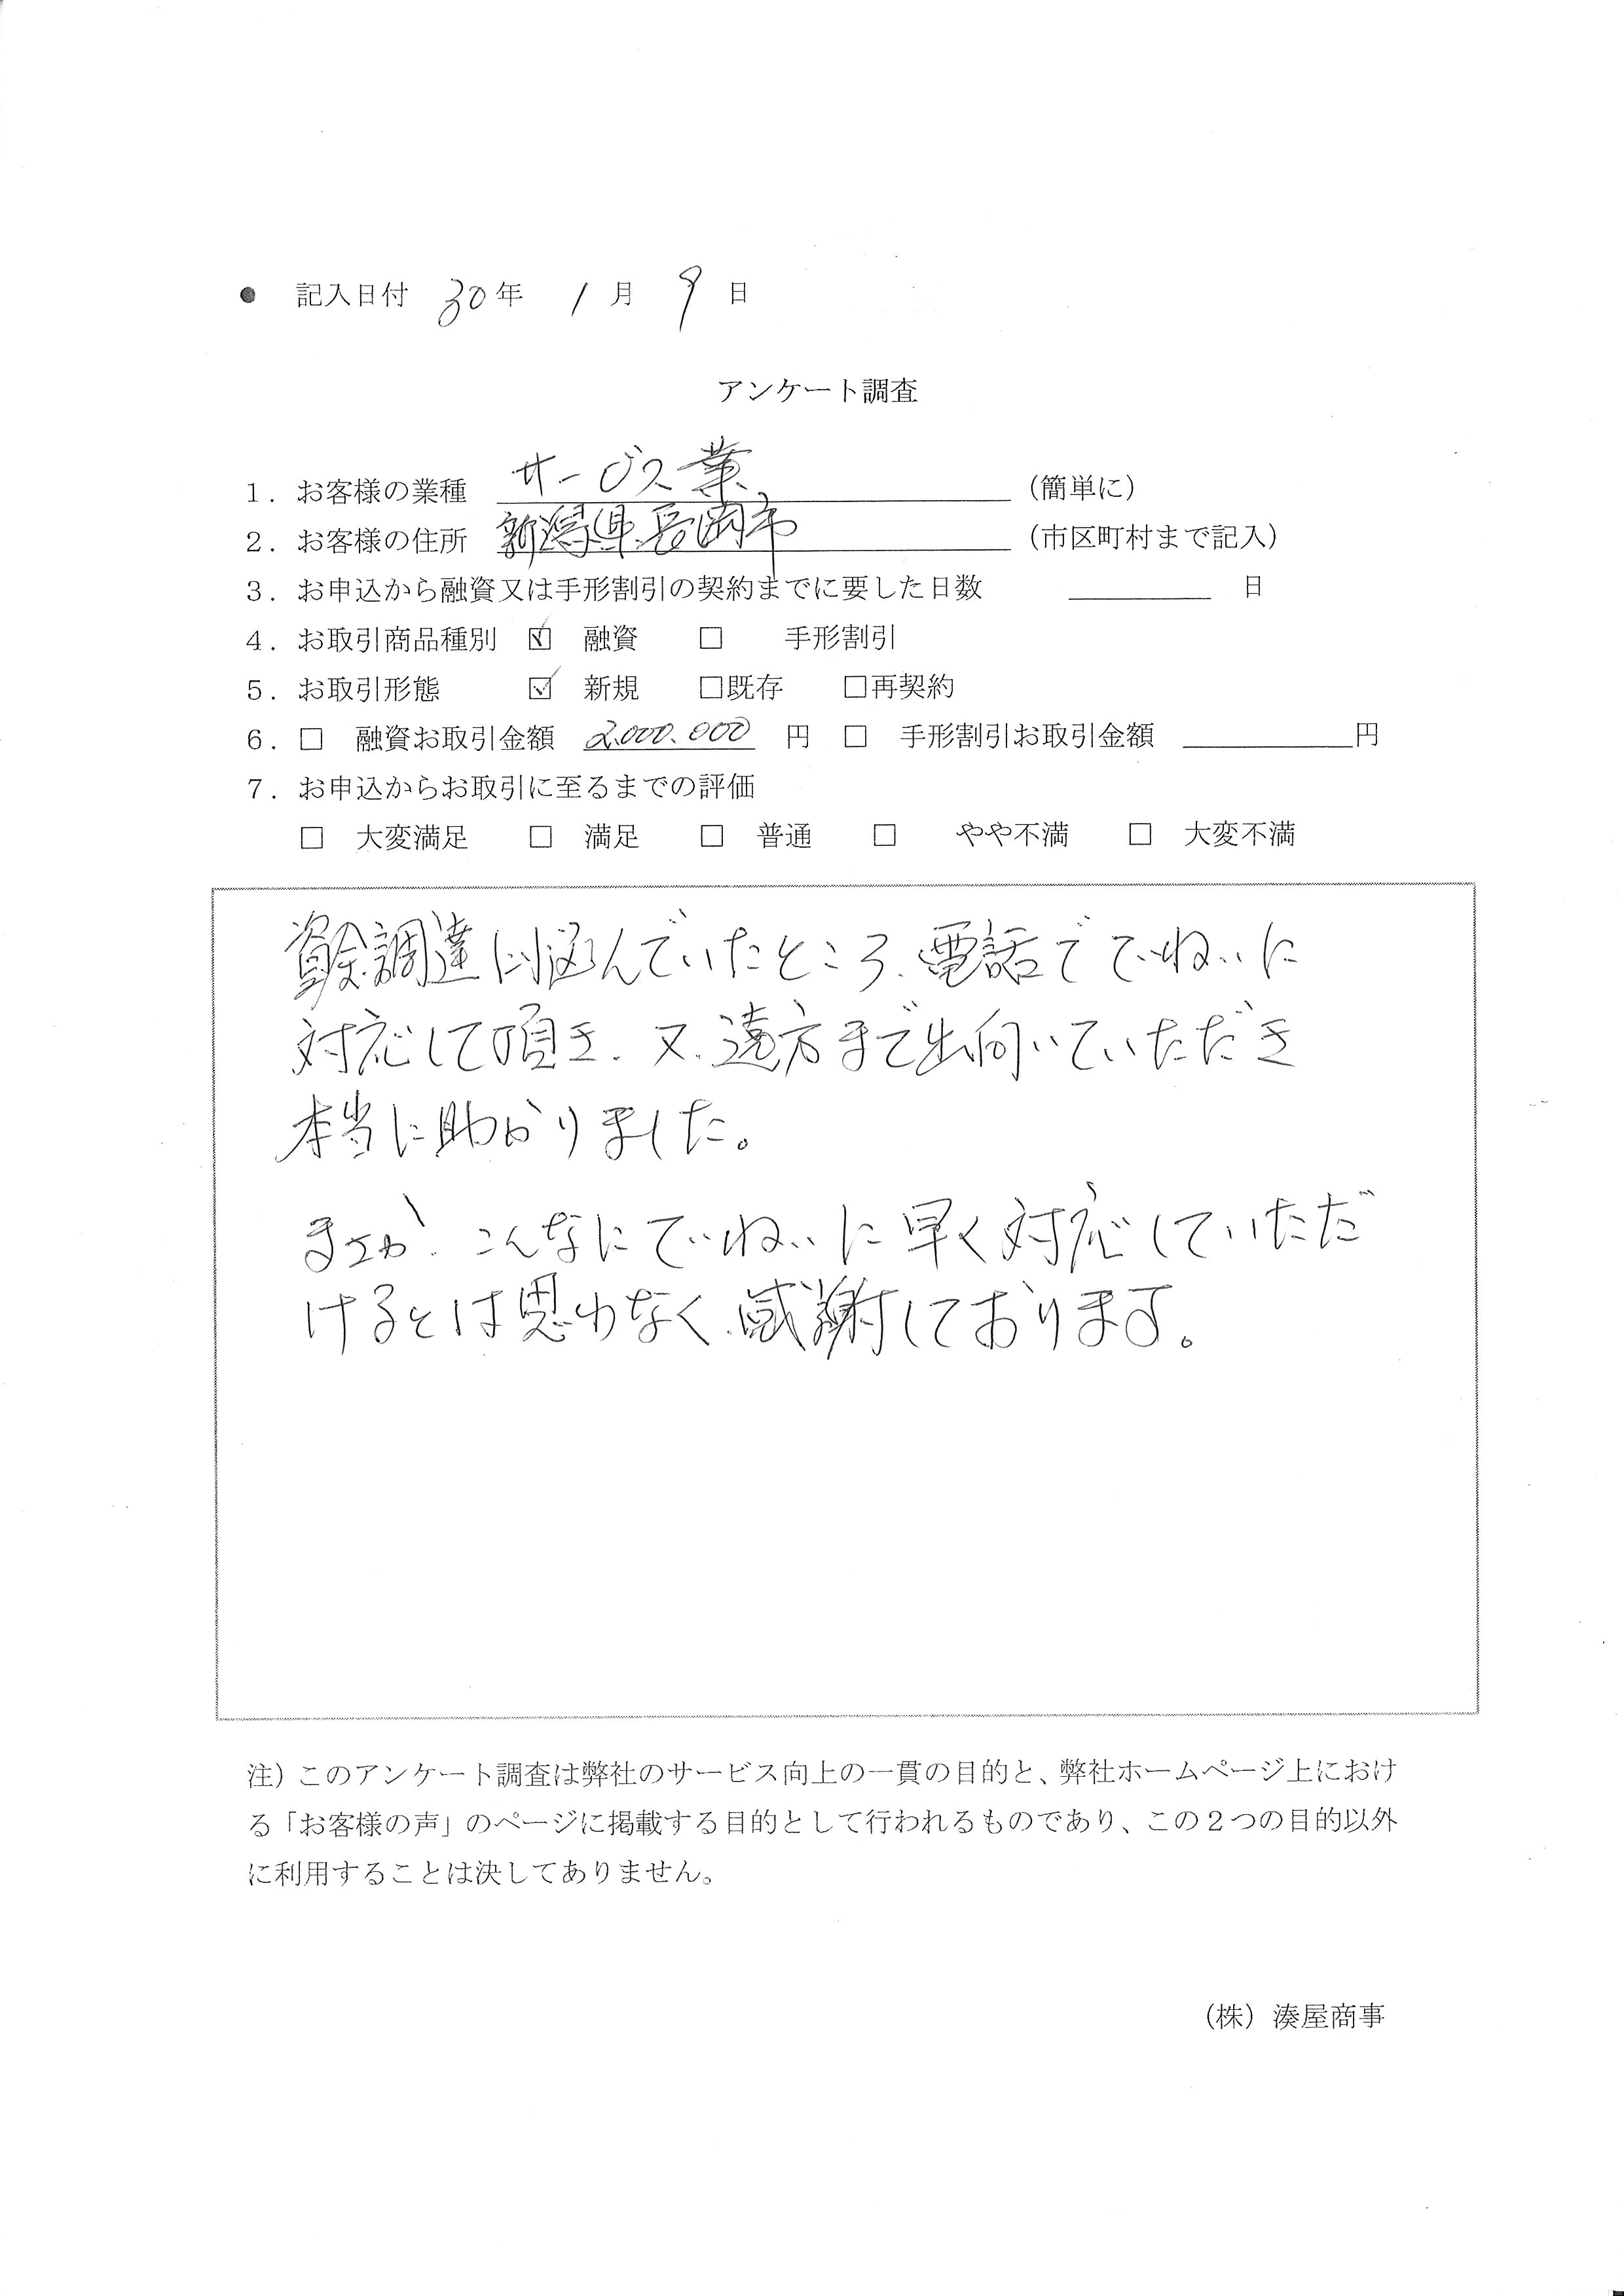 ● 記入日付 30年 1月 9日
アンケート調査
1．お客様の業種 サービス業 （簡単に）
2．お客様の住所 新潟県長岡市 （市区町村まで記入）
3．お申込から融資又は手形割引の契約までに要した日数 ＿＿＿＿＿ 日
4．お取引商品種別 ☑ 融資 □ 手形割引
5．お取引形態 ☑ 新規 □既存 □再契約
6．□ 融資お取引金額 2.000.000 円 □ 手形割引お取引金額 ＿＿＿＿＿＿円
7．お申込からお取引に至るまでの評価
□ 大変満足 □ 満足 □ 普通 □ やや不満 □ 大変不満
資金調達に悩んでいたところ、電話でていねいに
対応して頂き、又、遠方まで出向いていただき
本当に助かりました。
まさか、こんなにていねいに早く対応していただ
けるとは思わなく、感謝しております。
注）このアンケート調査は弊社のサービス向上の一貫の目的と、弊社ホームページ上におけ
る「お客様の声」のページに掲載する目的として行われるものであり、この２つの目的以外
に利用することは決してありません。
（株）湊屋商事